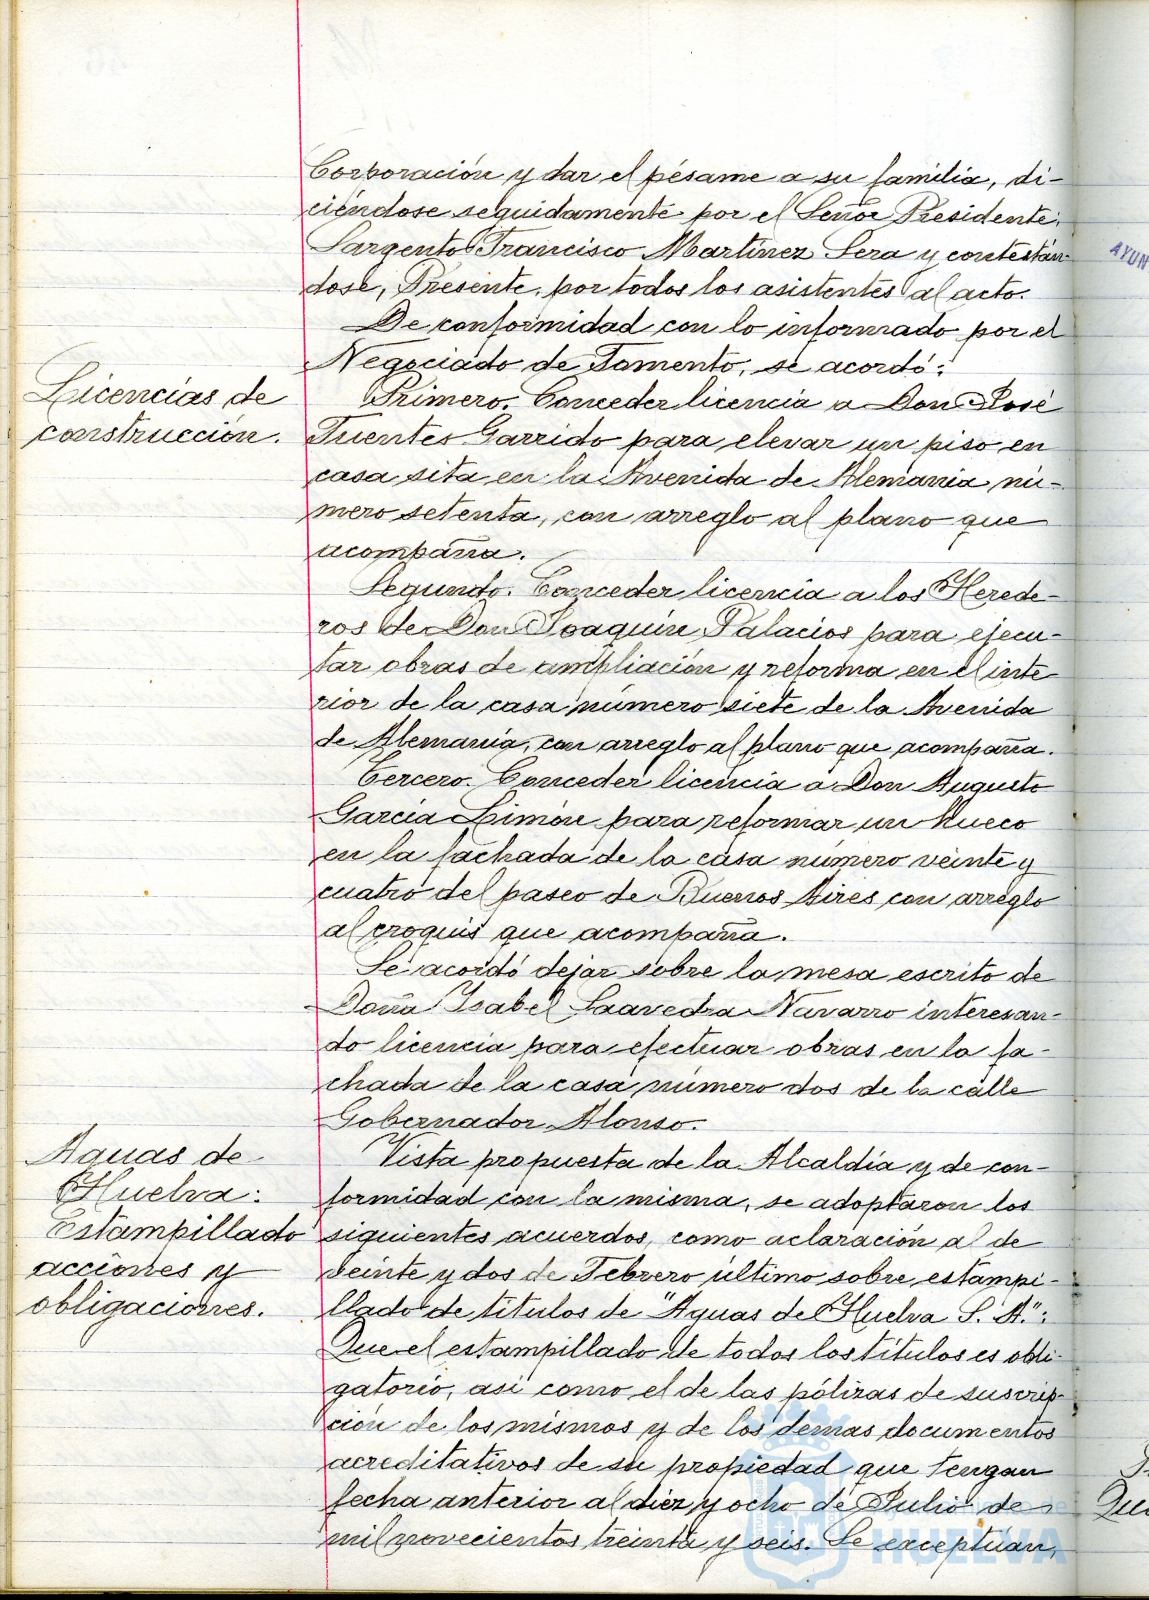 Corporación y dar el pésame a su familia, di-
ciéndose seguidamente por el Señor Presidente,
Sargento Francisco Martínez Sera y contestán-
dose, Presente, por todos los asistentes al acto.
De conformidad con lo informado por el
Negociado de Fomento, se acordó:
Licencias de
construcción.
Primero. Conceder licencia a Don José
Fuentes Garrido para elevar un piso en
casa sita en la Avenida de Alemania nú-
mero setenta, con arreglo al plano que
acompaña.
Segundo. Conceder licencia a los Herede-
ros de Don Joaquín Palacios para ejecu-
tar obras de ampliación y reforma en el inte
rior de la casa número siete de la Avenida
de Alemania, con arreglo al plano que acompaña.
Tercero. Conceder licencia a Don Augusto
García Limón para reformar un hueco
en la fachada de la casa número veinte y
cuatro del paseo de Buenos Aires con arreglo
al croquis que acompaña.
Se acordó dejar sobre la mesa escrito de
Doña Isabel Saavedra Navarro interesan-
do licencia para efectuar obras en la fa-
chada de la casa número dos de la calle
Gobernador Alonso.
Aguas de
Huelva:
Estampillado
acciones y
obligaciones.
Vista propuesta de la Alcaldía y de con-
formidad con la misma, se adoptaron los
siguientes acuerdos, como aclaración al de
veinte y dos de Febrero último sobre estampi-
llado de títulos de "Aguas de Huelva S. A.":
Que el estampillado de todos los títulos es obli-
gatorio, así como el de las pólizas de suscrip-
ción de los mismos y de los demas documentos
acreditativos de su propiedad que tengan
fecha anterior al diez y ocho de Julio de
mil novecientos treinta y seis. Se exceptúan,
AYUN
HUELVA